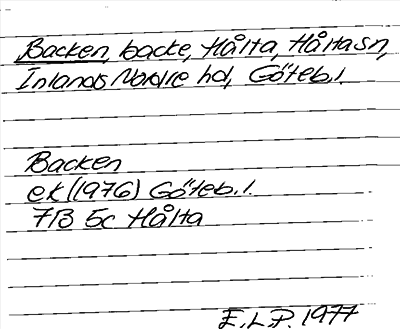 Backen, backe, Hålta, Hålta sn,
Inlands Nordre hd, Göteb. l.
Backen
ek (1976) Göteb. l.
7B 5c Hålta
E.L.P. 1977